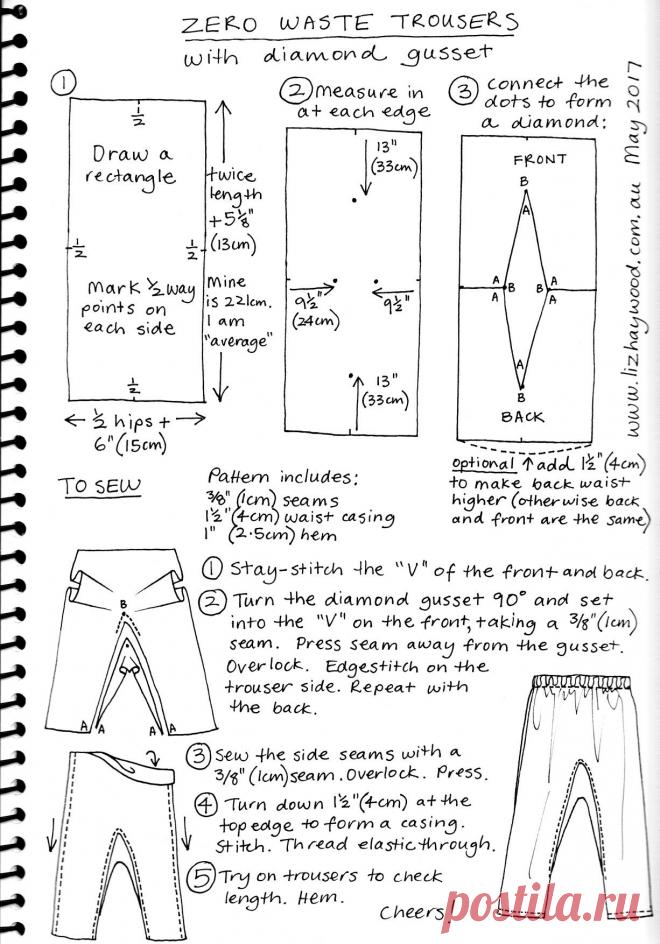 ZERO WASTE TROUSERS
with diamond gusset
www.lizhaywood.com.au May 2017
①
½
Draw a
rectangle
½
½
Mark ½ way
points on
each side
½
twice
length
+ 5⅛"
(13cm)
Mine
is 221cm.
I am
"average"
½ hips +
6" (15cm)
② measure in
at each edge
13"
(33cm)
9½"
(24cm)
9½"
13"
(33cm)
③ connect the
dots to form
a diamond:
FRONT
B
A
A B B A
A A
A
B
BACK
optional ↑ add 1½" (4cm)
to make back waist
higher (otherwise back
and front are the same)
TO SEW
Pattern includes:
⅜" (1cm) seams
1½" (4cm) waist casing
1" (2.5cm) hem
① Stay-stitch the "V" of the front and back.
② Turn the diamond gusset 90° and set
into the "V" on the front, taking a 3/8" (1cm)
seam. Press seam away from the gusset.
Overlock. Edgestitch on the
trouser side. Repeat with
the back.
B
A A A A
③ Sew the side seams with a
3/8" (1cm) seam. Overlock. Press.
④ Turn down 1½" (4cm) at the
top edge to form a casing.
Stitch. Thread elastic through.
⑤ Try on trousers to check
length. Hem.
Cheers!
postila.ru